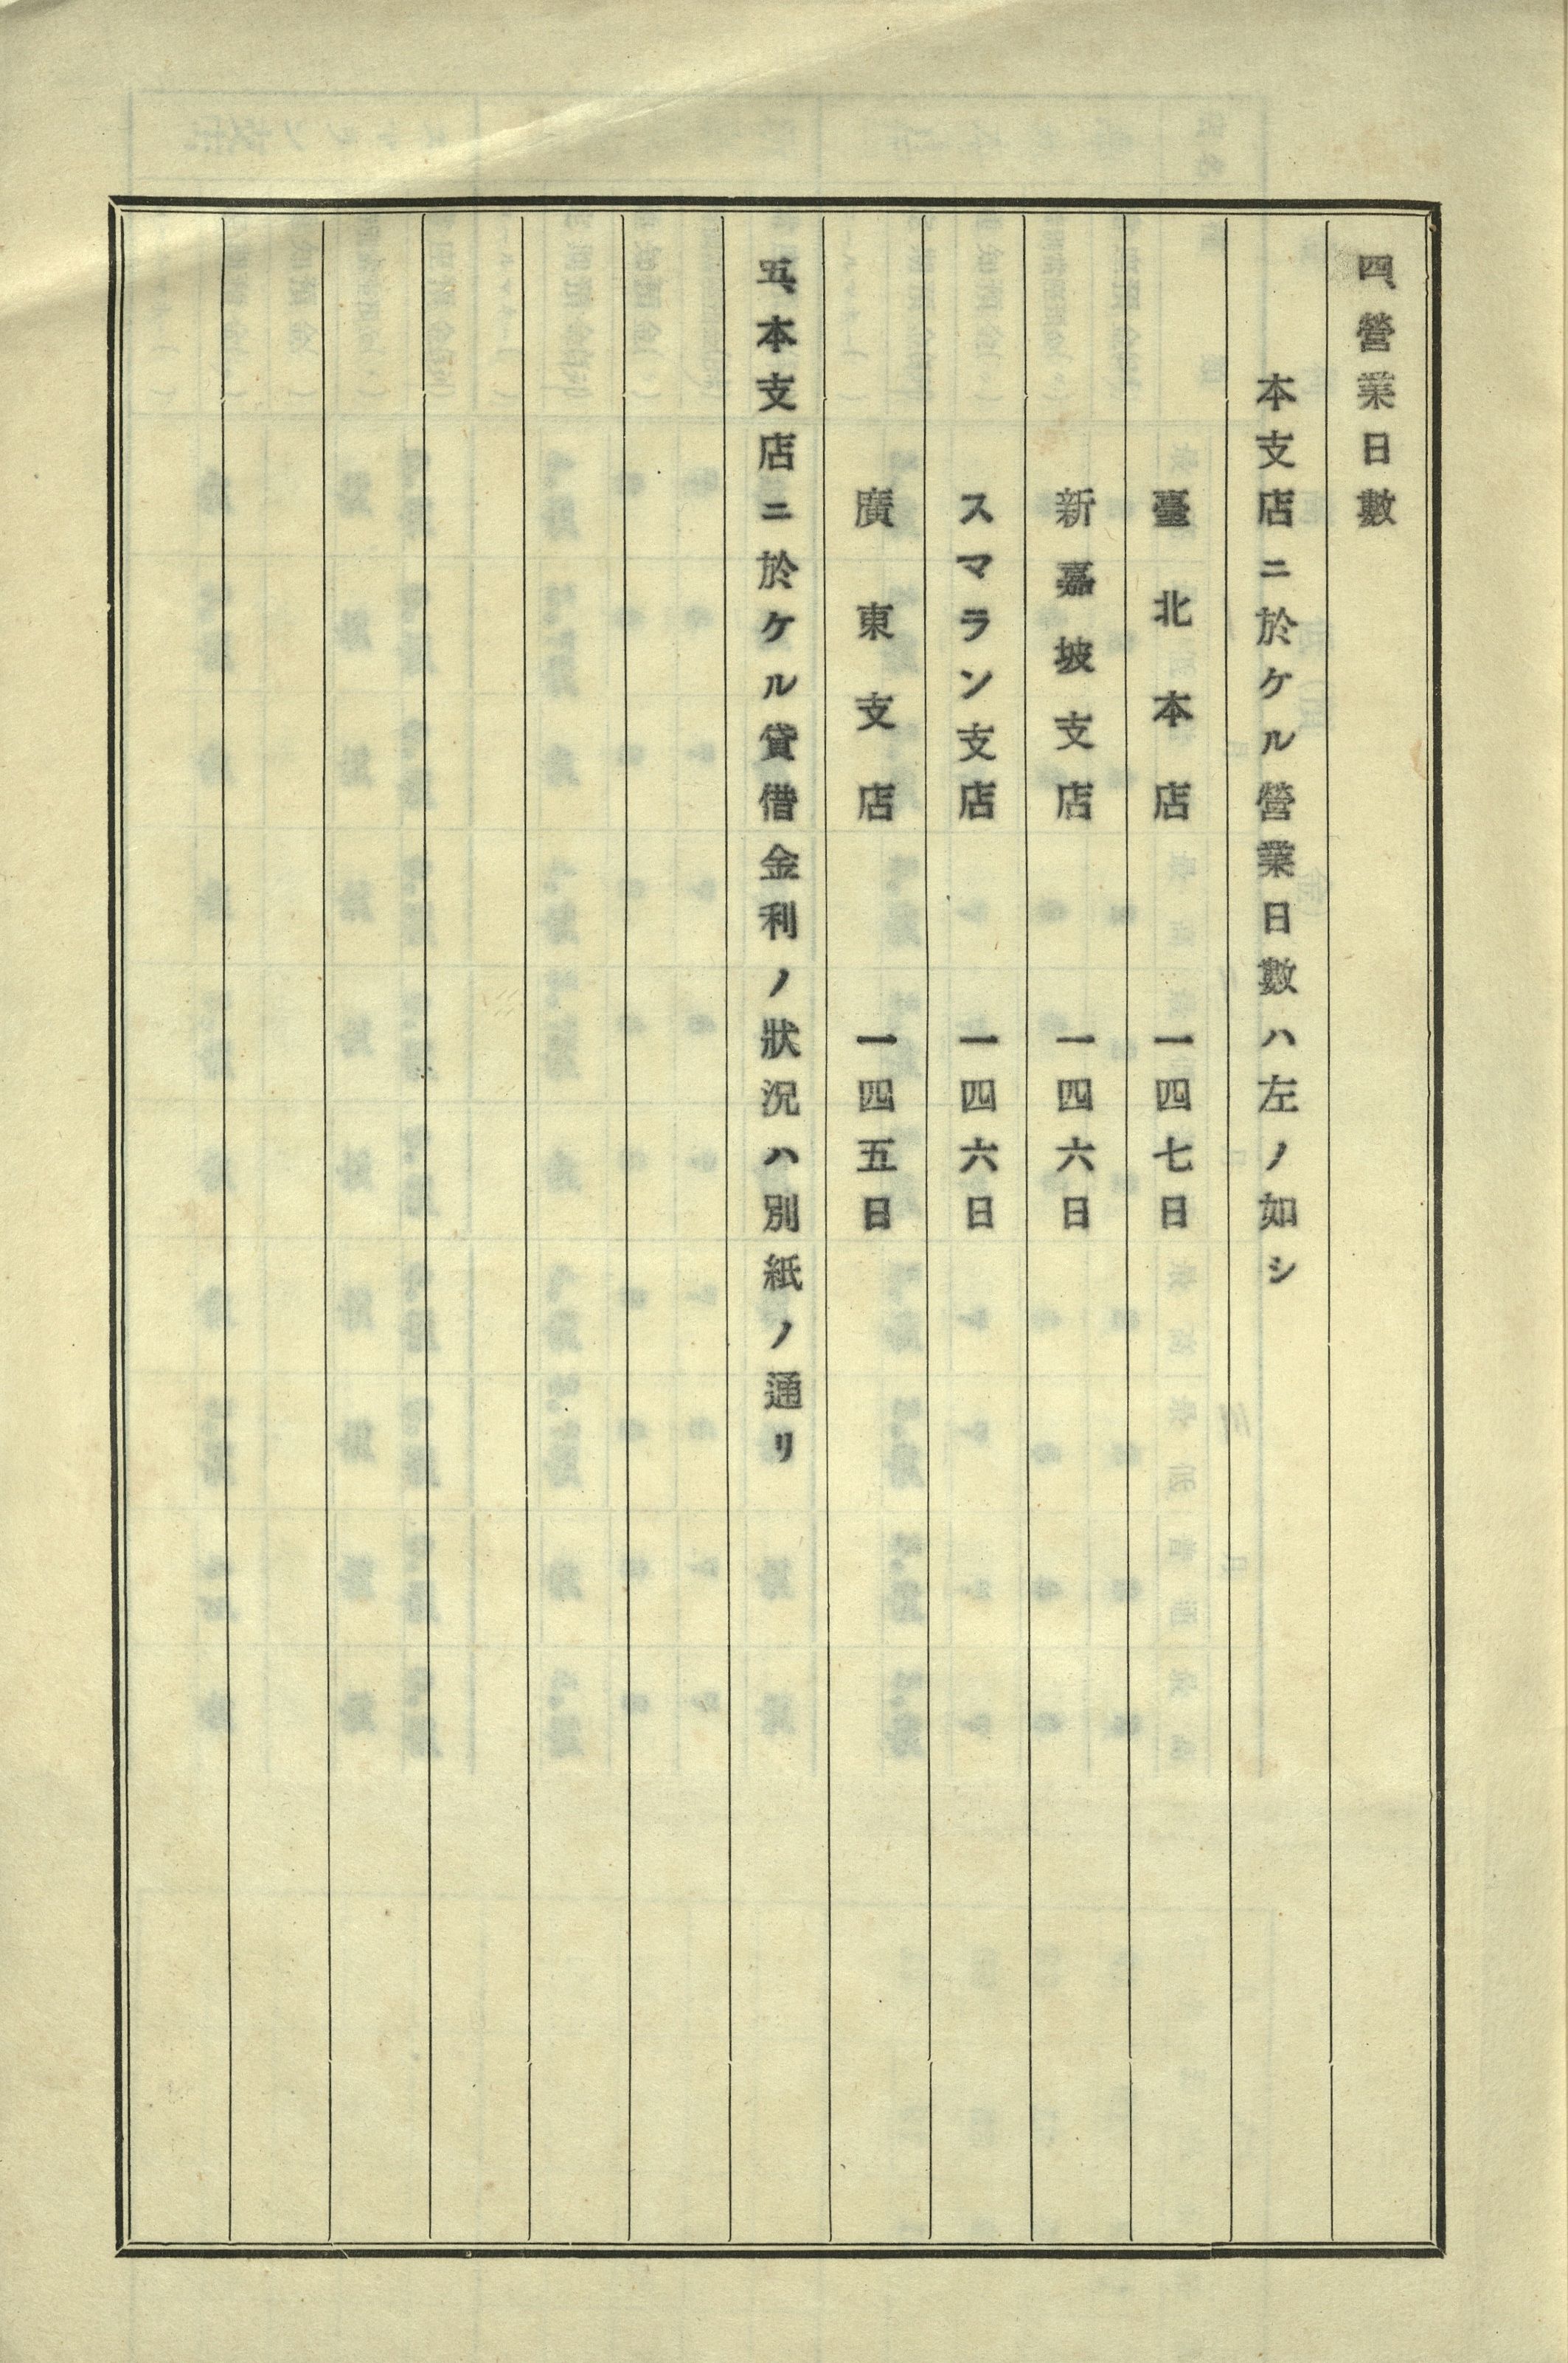 四、營業日數
本支店ニ於ケル營業日數ハ左ノ如シ
臺北本店 一四七日
新嘉坡支店 一四六日
スマラン支店 一四六日
廣東支店 一四五日
五、本支店ニ於ケル貸借金利ノ狀況ハ別紙ノ通リ